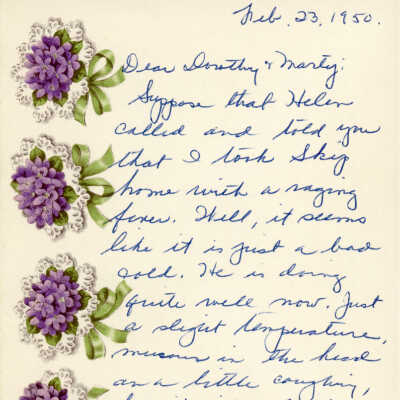 Feb. 23, 1950.
Dear Dorothy & Marty:
Suppose that Helen
called and told you
that I took Skip
home with a raging
fever. Well, it seems
like it is just a bad
cold. He is doing
quite well now. Just
a slight temperature,
in the head
and a little coughing,